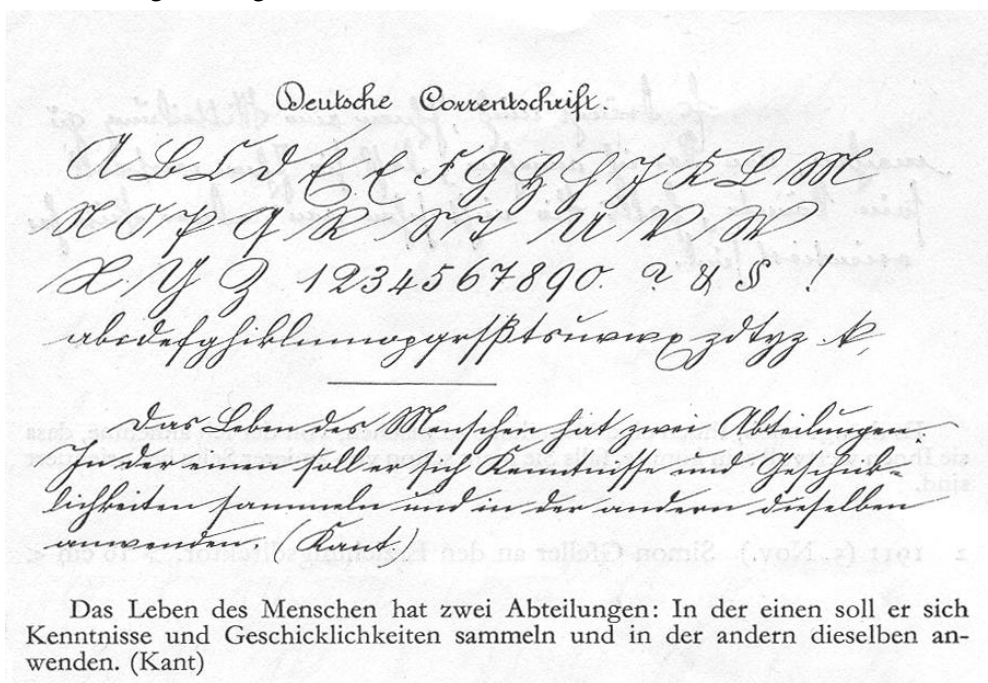 Deutsche Correntschrift.
A B C D E E F G H H J K L M
N O P Q R S T U V W
X Y Z 1234567890. ? & § !
abcdefghiklmnopqrsßtsuvwx zdtyz k,
Das Leben des Menschen hat zwei Abteilungen:
In der einen soll er sich Kenntnisse und Geschick-
lichkeiten sammeln und in der andern dieselben
anwenden. (Kant.)
Das Leben des Menschen hat zwei Abteilungen: In der einen soll er sich
Kenntnisse und Geschicklichkeiten sammeln und in der andern dieselben an-
wenden. (Kant)